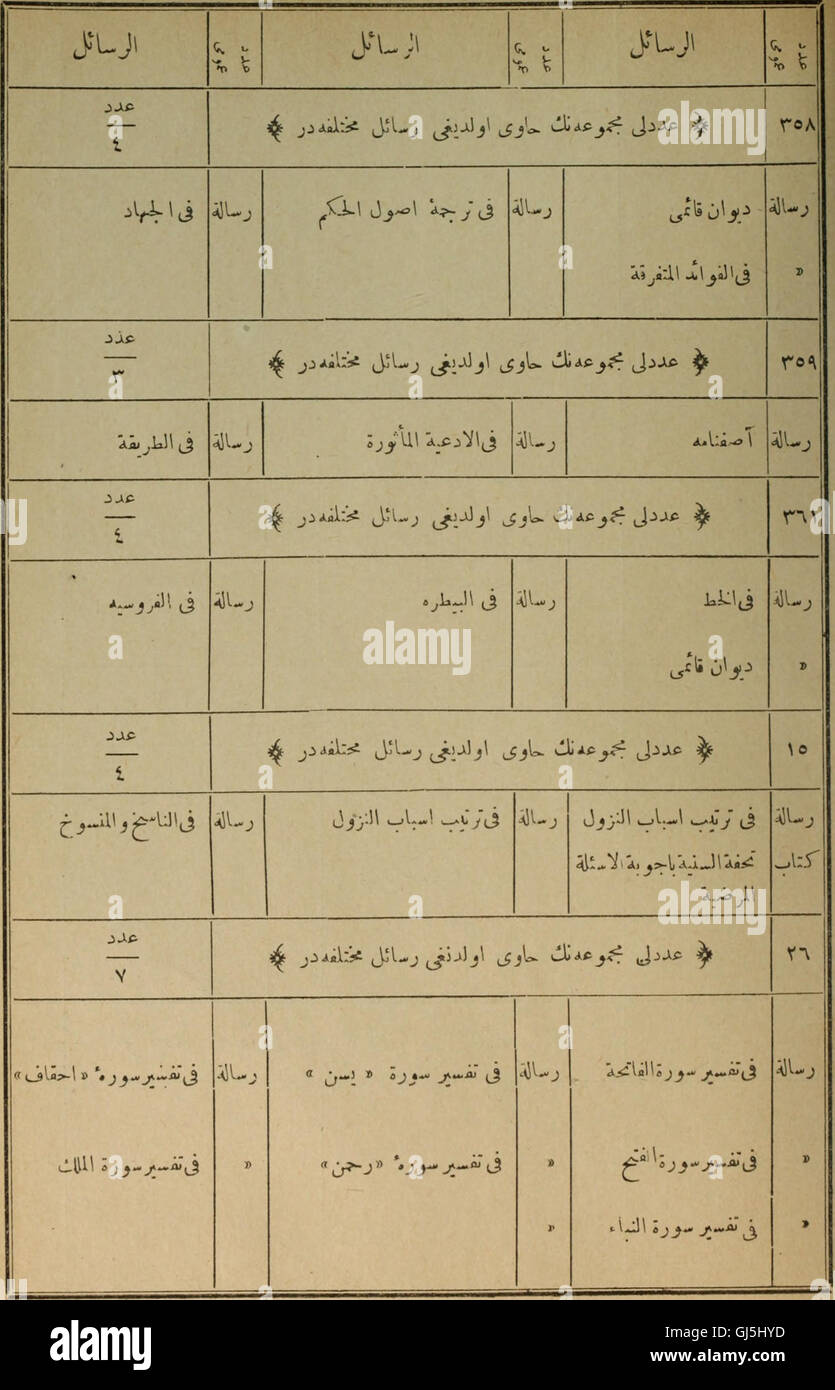 عدد عمومى الرسائل عدد عمومى الرسائل عدد عمومى الرسائل
٣٥٨ عددلى مجموعه‌نك حاوى اولديغى رسائل مختلفه‌در عدد ٤
رسالة ديوان قائمى رسالة فى ترجمۀ اصول الحكم رسالة فى الجهاد
» فى الفوائد المتفرقة
٣٥٩ عددلى مجموعه‌نك حاوى اولديغى رسائل مختلفه‌در عدد ٣
رسالة آصفنامه رسالة فى الادعية المأثورة رسالة فى الطريقة
عددلى مجموعه‌نك حاوى اولديغى رسائل مختلفه‌در عدد ٤
رسالة فى الخط رسالة فى البيطره رسالة فى الفروسيه
» ديوان قائمى
١٥ عددلى مجموعه‌نك حاوى اولديغى رسائل مختلفه‌در عدد ٤
رسالة فى ترتيب اسباب النزول رسالة فى ترتيب اسباب النزول رسالة فى الناسخ و المنسوخ
كتاب تحفة السنية باجوبة الاسئلة
المرضية
٢٦ عددلى مجموعه‌نك حاوى اولدنغى رسائل مختلفه‌در عدد ٧
رسالة فى تفسير سورة الفاتحة رسالة فى تفسير سورة « يسن » رسالة فى تفسير سورۀ «احقاف»
» فى تفسير سورة الفتح » فى تفسير سورۀ «رحمن» » فى تفسير سورة الملك
» فى تفسير سورة النباء »
alamy
alamy stock photo
GJ5HYD
www.alamy.com